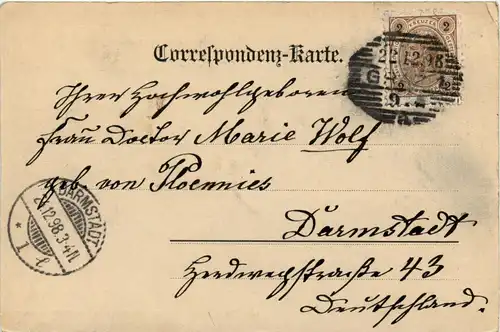 2 KREUZER 2
Correspondenz-Karte.
22 12.98
G
9
Ihrer Hochwohlgeboren
Frau Doctor Marie Wolf
geb. von Ploennies
Darmstadt
Herdwegstraße 43
Deutschland.
DARMSTADT
12.98.3-4N
* 1